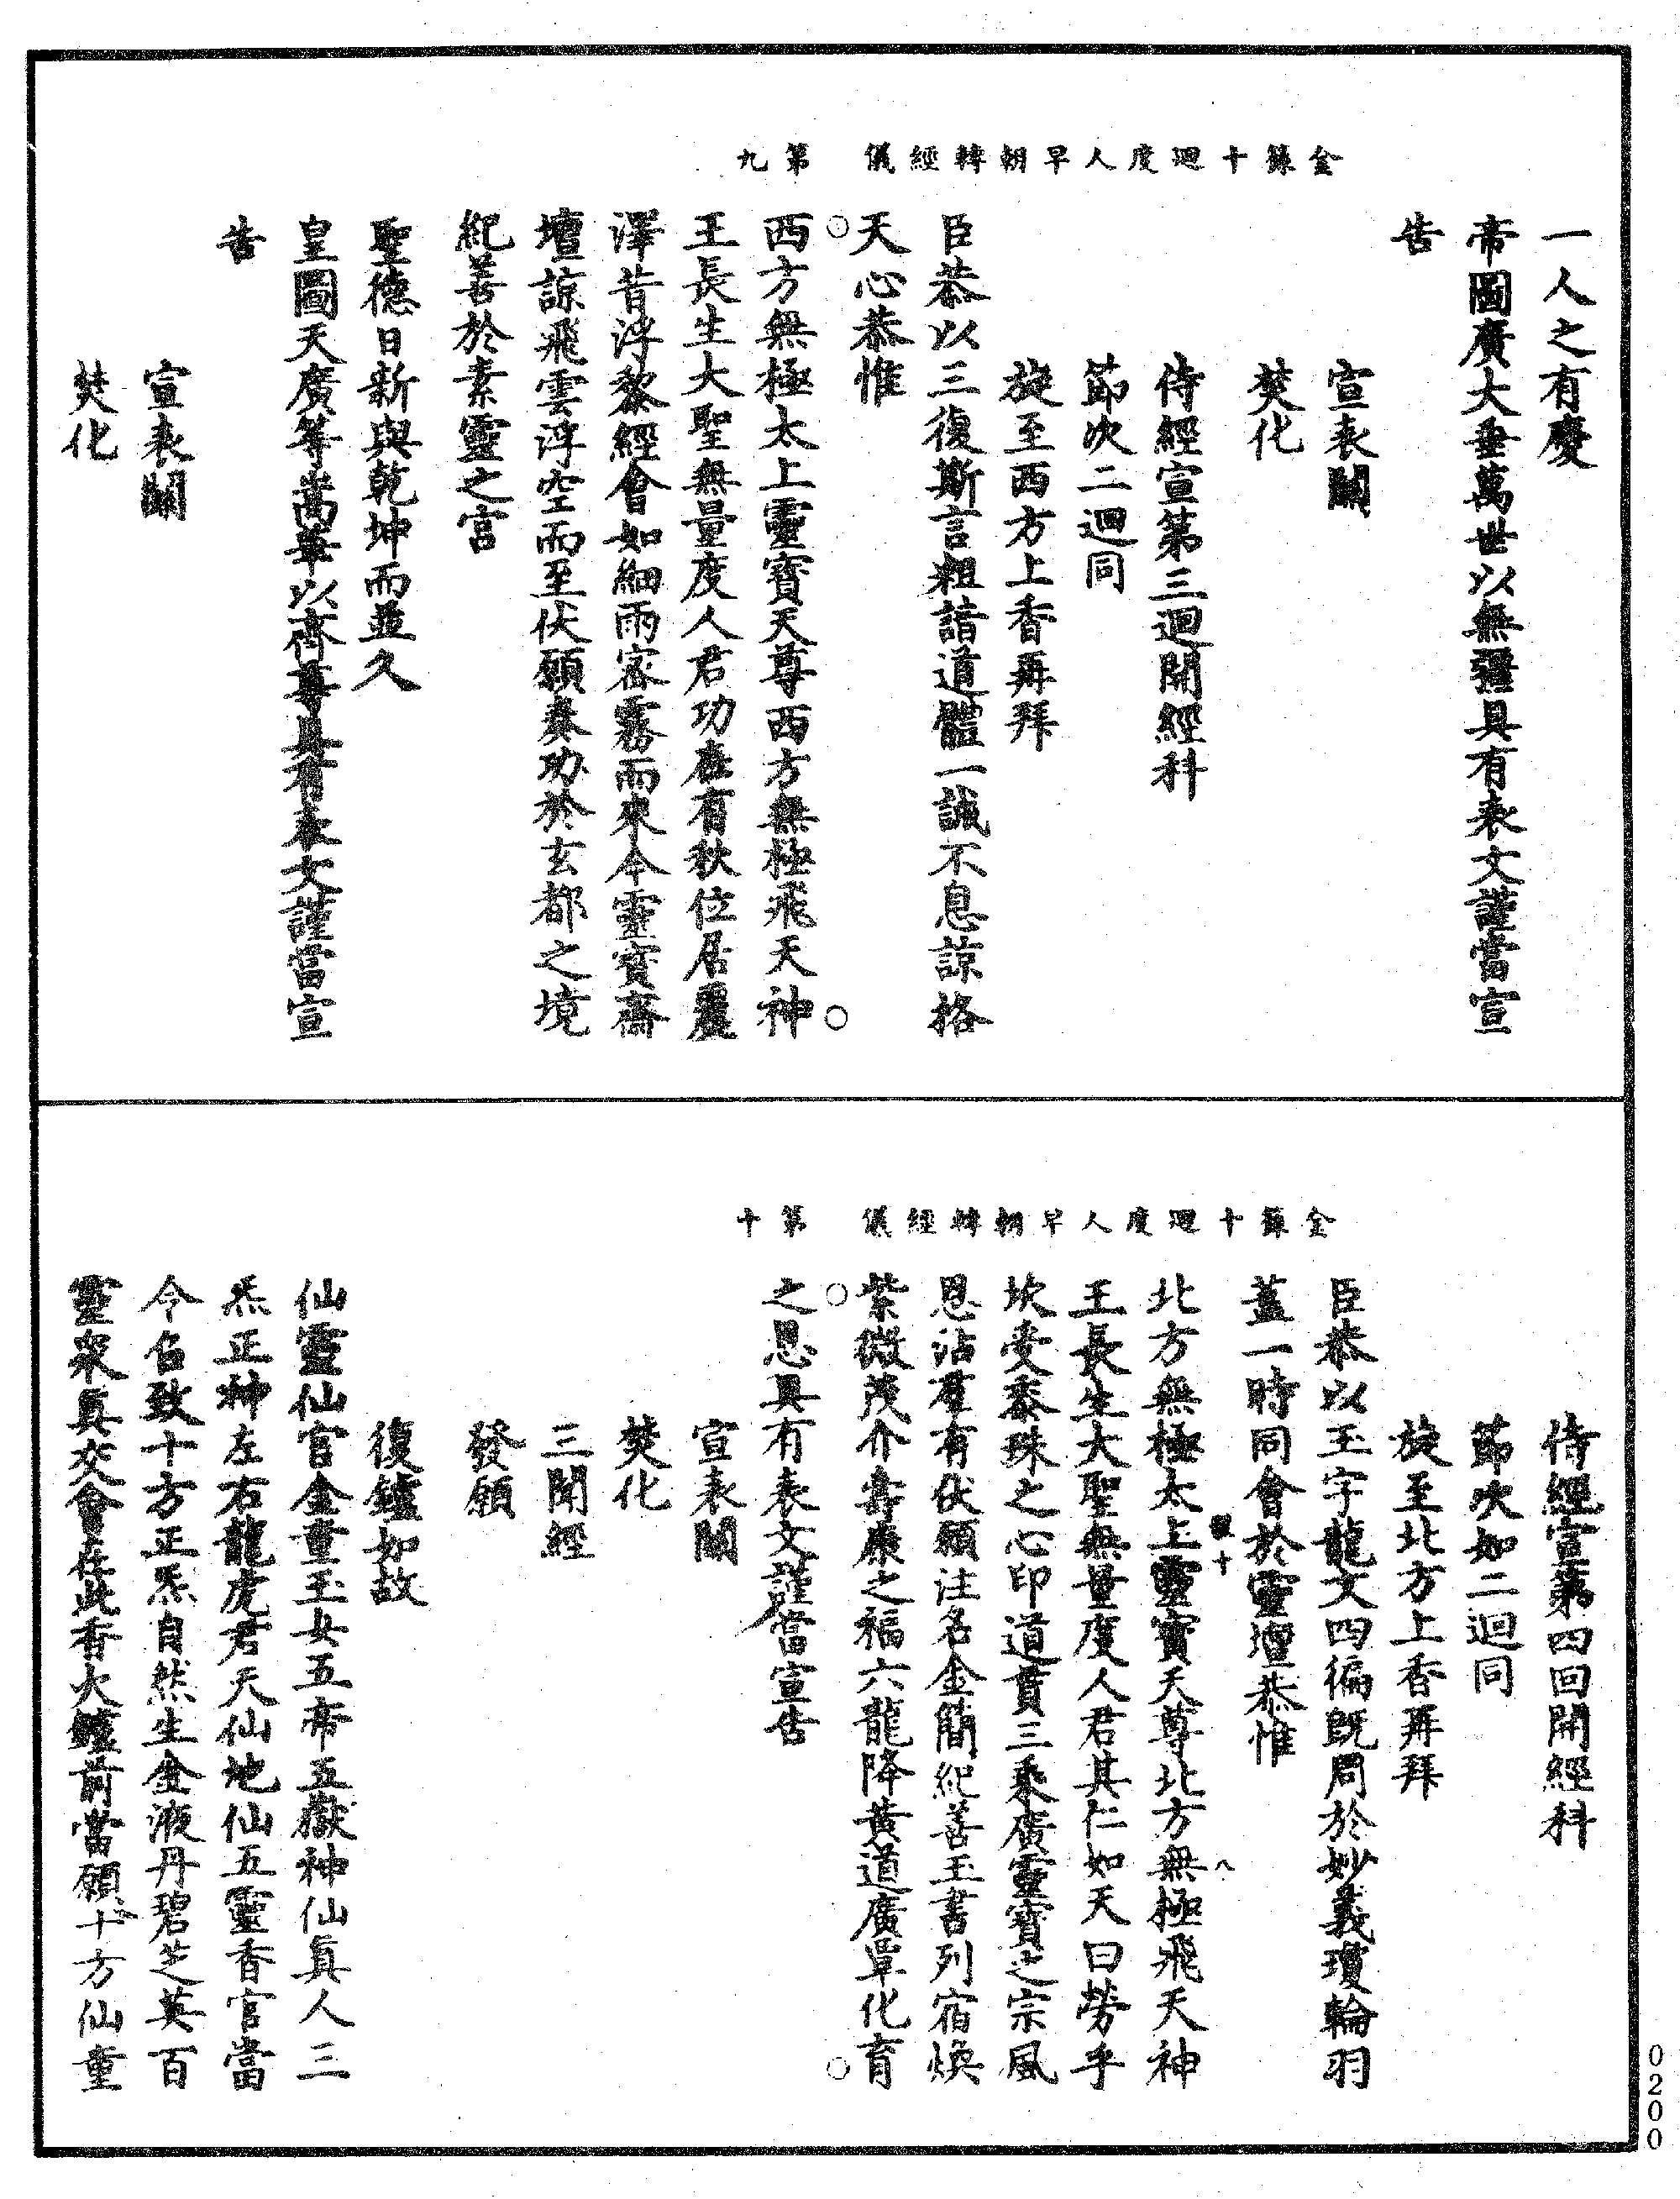 金籙十迴度人早朝轉經儀　第九
一人之有慶
帝圖廣大垂萬世以無疆具有表文謹當宣
告
宣表關
焚化
侍經宣第三迴開經科
節次二迴同
旋至西方上香再拜
臣恭以三復斯言粗諧道體一誠不息諒格
天心恭惟
西方無極太上靈寶天尊西方無極飛天神
王長生大聖無量度人君功在有秋位居麗
澤昔浮黎經會如細雨密霧而來今靈寶齋
壇諒飛雲浮空而至伏願奏功於玄都之境
紀善於素靈之宮
聖德日新與乾坤而並久
皇圖天廣等嵩華以齊尊具有表文謹當宣
告
宣表關
焚化
金籙十迴度人早朝轉經儀　第十
侍經宣第四回開經科
節次如二迴同
旋至北方上香再拜
臣恭以玉字龍文四徧既周於妙義瓊輪羽
蓋一時同會於靈壇恭惟
十　八
北方無極太上靈寶天尊北方無極飛天神
王長生大聖無量度人君其仁如天曰勞乎
坎受黍珠之心印道貫三乘廣靈寶之宗風
恩沾羣有伏願注名金簡紀善玉書列宿煥
紫微茂介壽康之福六龍降黃道廣覃化育
之恩具有表文謹當宣告
宣表關
焚化
三聞經
發願
復鑪如故
仙靈仙官金童玉女五帝五嶽神仙眞人三
炁正神左右龍虎君天仙地仙五靈香官當
今召致十方正炁自然生金液丹碧芝英百
靈衆眞交會在此香火鑪前當願十方仙童
0200